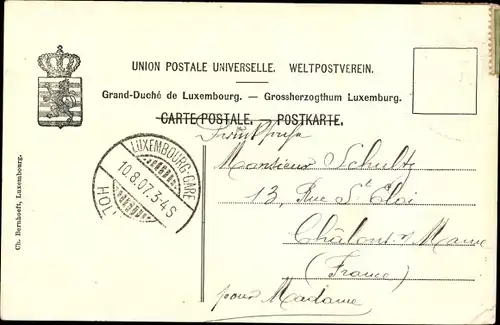 UNION POSTALE UNIVERSELLE. WELTPOSTVEREIN.
Grand-Duché de Luxembourg. — Grossherzogthum Luxemburg.
CARTE POSTALE. — POSTKARTE.
Drucksache
LUXEMBOURG-GARE
10.8.07.3-4S
Monsieur Schultz
13, Rue St Eloi
Châlons s/ Marne
(France)
pour Madame
Ch. Bernhoeft, Luxembourg.